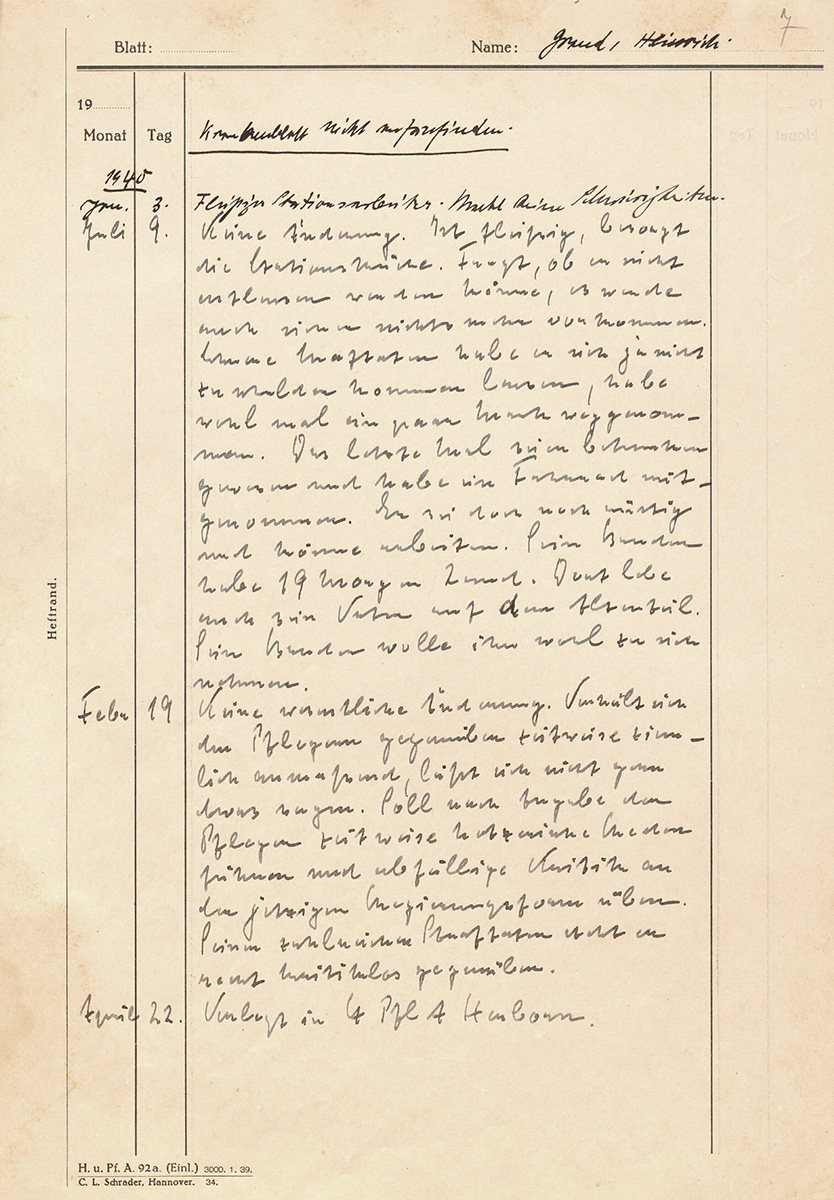 7
Blatt: Name: Grund, Heinrich
19
Monat Tag Krankenblatt nicht aufzufinden.
1940
Jan. 3. Fleißiger Stationsarbeiter. Macht keine Schwierigkeiten.
Juli 9. Keine Änderung. Ist fleißig, besorgt
die Stationsküche. Fragt, ob er nicht
entlassen werden könne, es werde
auch sicher nichts mehr vorkommen.
Schwere Straftaten habe er sich ja nicht
zu schulden kommen lassen, habe
wohl mal ein paar Mark weggenom-
men. Das letzte Mal sei er betrunken
gewesen und habe ein Fahrrad mit-
genommen. Er sei doch noch rüstig
und könne arbeiten. Sein Bruder
habe 19 Morgen Land. Dort lebe
auch sein Vater auf dem Altenteil.
Sein Bruder wolle ihn wohl zu sich
nehmen.
Febr 19 Keine wesentliche Änderung. Verhält sich
den Pflegern gegenüber zeitweise ziem-
lich anmaßend, läßt sich nicht gern
etwas sagen. Soll nach Angabe der
Pfleger zeitweise hetzerische Reden
führen und abfällige Kritik an
der jetzigen Regierungsform üben.
Seinen zahlreichen Straftaten steht er
recht kritiklos gegenüber.
April 22. Verlegt in H Pfl A Herborn.
Heftrand.
H. u. Pf. A. 92a. (Einl.) 3000. 1. 39.
C. L. Schrader, Hannover. 34.